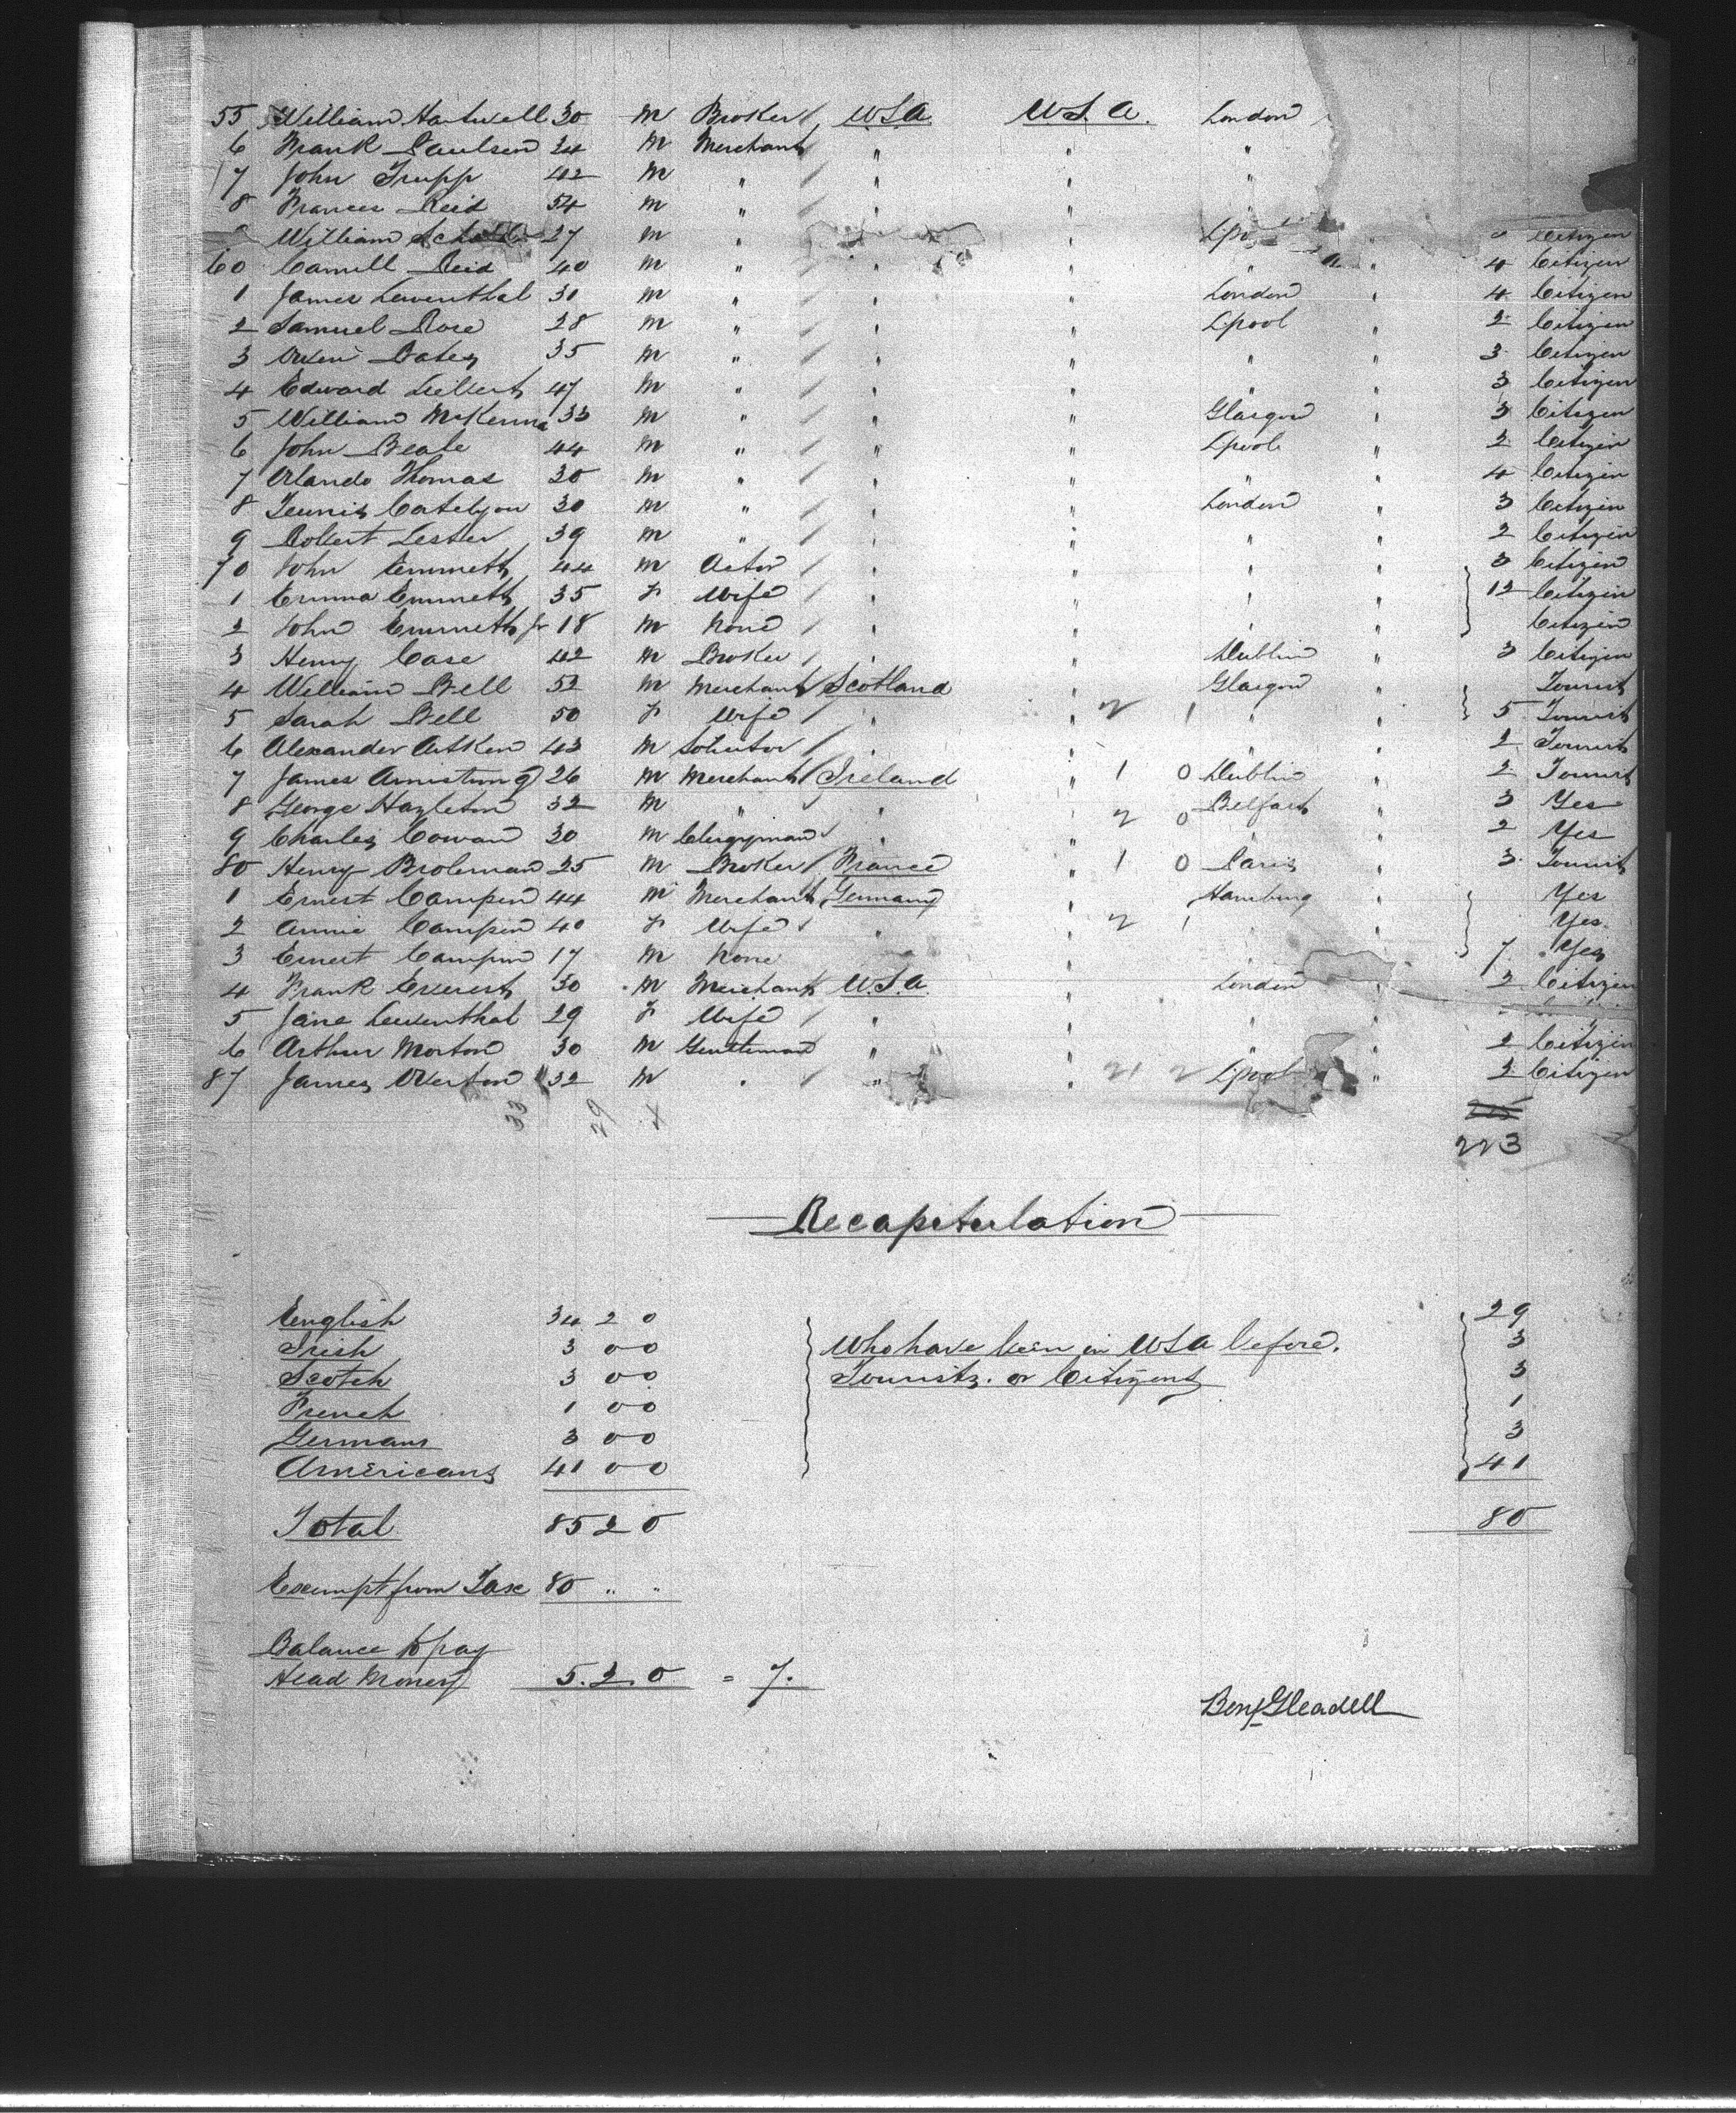 55 William Hartwell 30 M Broker U.S.A. U.S.A. London
6 Frank Paulsen 34 M Merchant " " "
7 John Trupp 42 M " " " "
8 Frances Reid 54 M " " " "
William 27 M " Citizen
60 Camill Reid 40 M " " " " " 4 Citizen
1 James Leventhal 31 M " " " London " 4 Citizen
2 Samuel Rose 28 M " " " Lpool " 2 Citizen
3 Owen Bates 35 M " " " " " 3 Citizen
4 Edward Siebert 47 M " " " " " 3 Citizen
5 William McKenna 33 M " " " Glasgow " 3 Citizen
6 John Beale 44 M " " " Lpool " 2 Citizen
7 Orlando Thomas 30 M " " " " " 4 Citizen
8 Teunis 30 M " " " London " 3 Citizen
9 Robert Lester 39 M " " " " " 2 Citizen
70 John Emmett 44 M Actor " " " " 3 Citizen
1 Emma Emmett 35 F Wife " " " " 12 Citizen
2 John Emmett Jr 18 M None " " " Citizen
3 Henry Case 42 M Broker " " Dublin " 3 Citizen
4 William Bell 52 M Merchant Scotland " Glasgow " Tourist
5 Sarah Bell 50 F Wife " " 2 1 " " 5 Tourist
6 Alexander Aitken 43 M Solicitor " " " " 2 Tourist
7 James Armstrong 26 M Merchant Ireland " 1 0 Dublin " 2 Tourist
8 George Hazleton 32 M " " " 2 0 Belfast " 3 Yes
9 Charles Cowan 30 M Clergyman " " " " 2 Yes
80 Henry Broleman 25 M Broker France " 1 0 Paris " 3 Tourist
1 Ernest Campen 44 M Merchant Germany " Hamburg " Yes
2 Annie Campen 40 F Wife " " 2 1 " " Yes.
3 Ernest Campen 17 M None " " " " 7 Yes
4 Frank Everest 30 M Merchant U.S.A. " London " 2 Citizen
5 Jane Leventhal 29 F Wife " " " "
6 Arthur Morton 30 M Gentleman " " " " 2 Citizen
87 James Overton 32 M " " " 21 2 Lpool " 2 Citizen
33 29 4
223
Recapitulation
English 34 2 0 29
Irish 3 0 0 Who have been in USA before. 3
Scotch 3 0 0 Tourists. or Citizens 3
French 1 0 0 1
Germans 3 0 0 3
Americans 41 0 0 41
Total 85 2 0 80
Exempt from Tax 80 " "
Balance to pay
Head Money 5. 2. 0 = 7.
Benj Gleadell